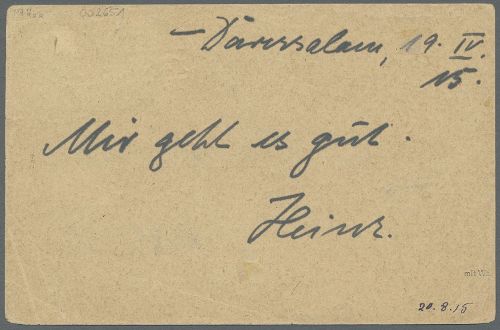 – Daressalam, 19. IV.
15.
Mir geht es gut.
Heinz.
mit W
20.8.15